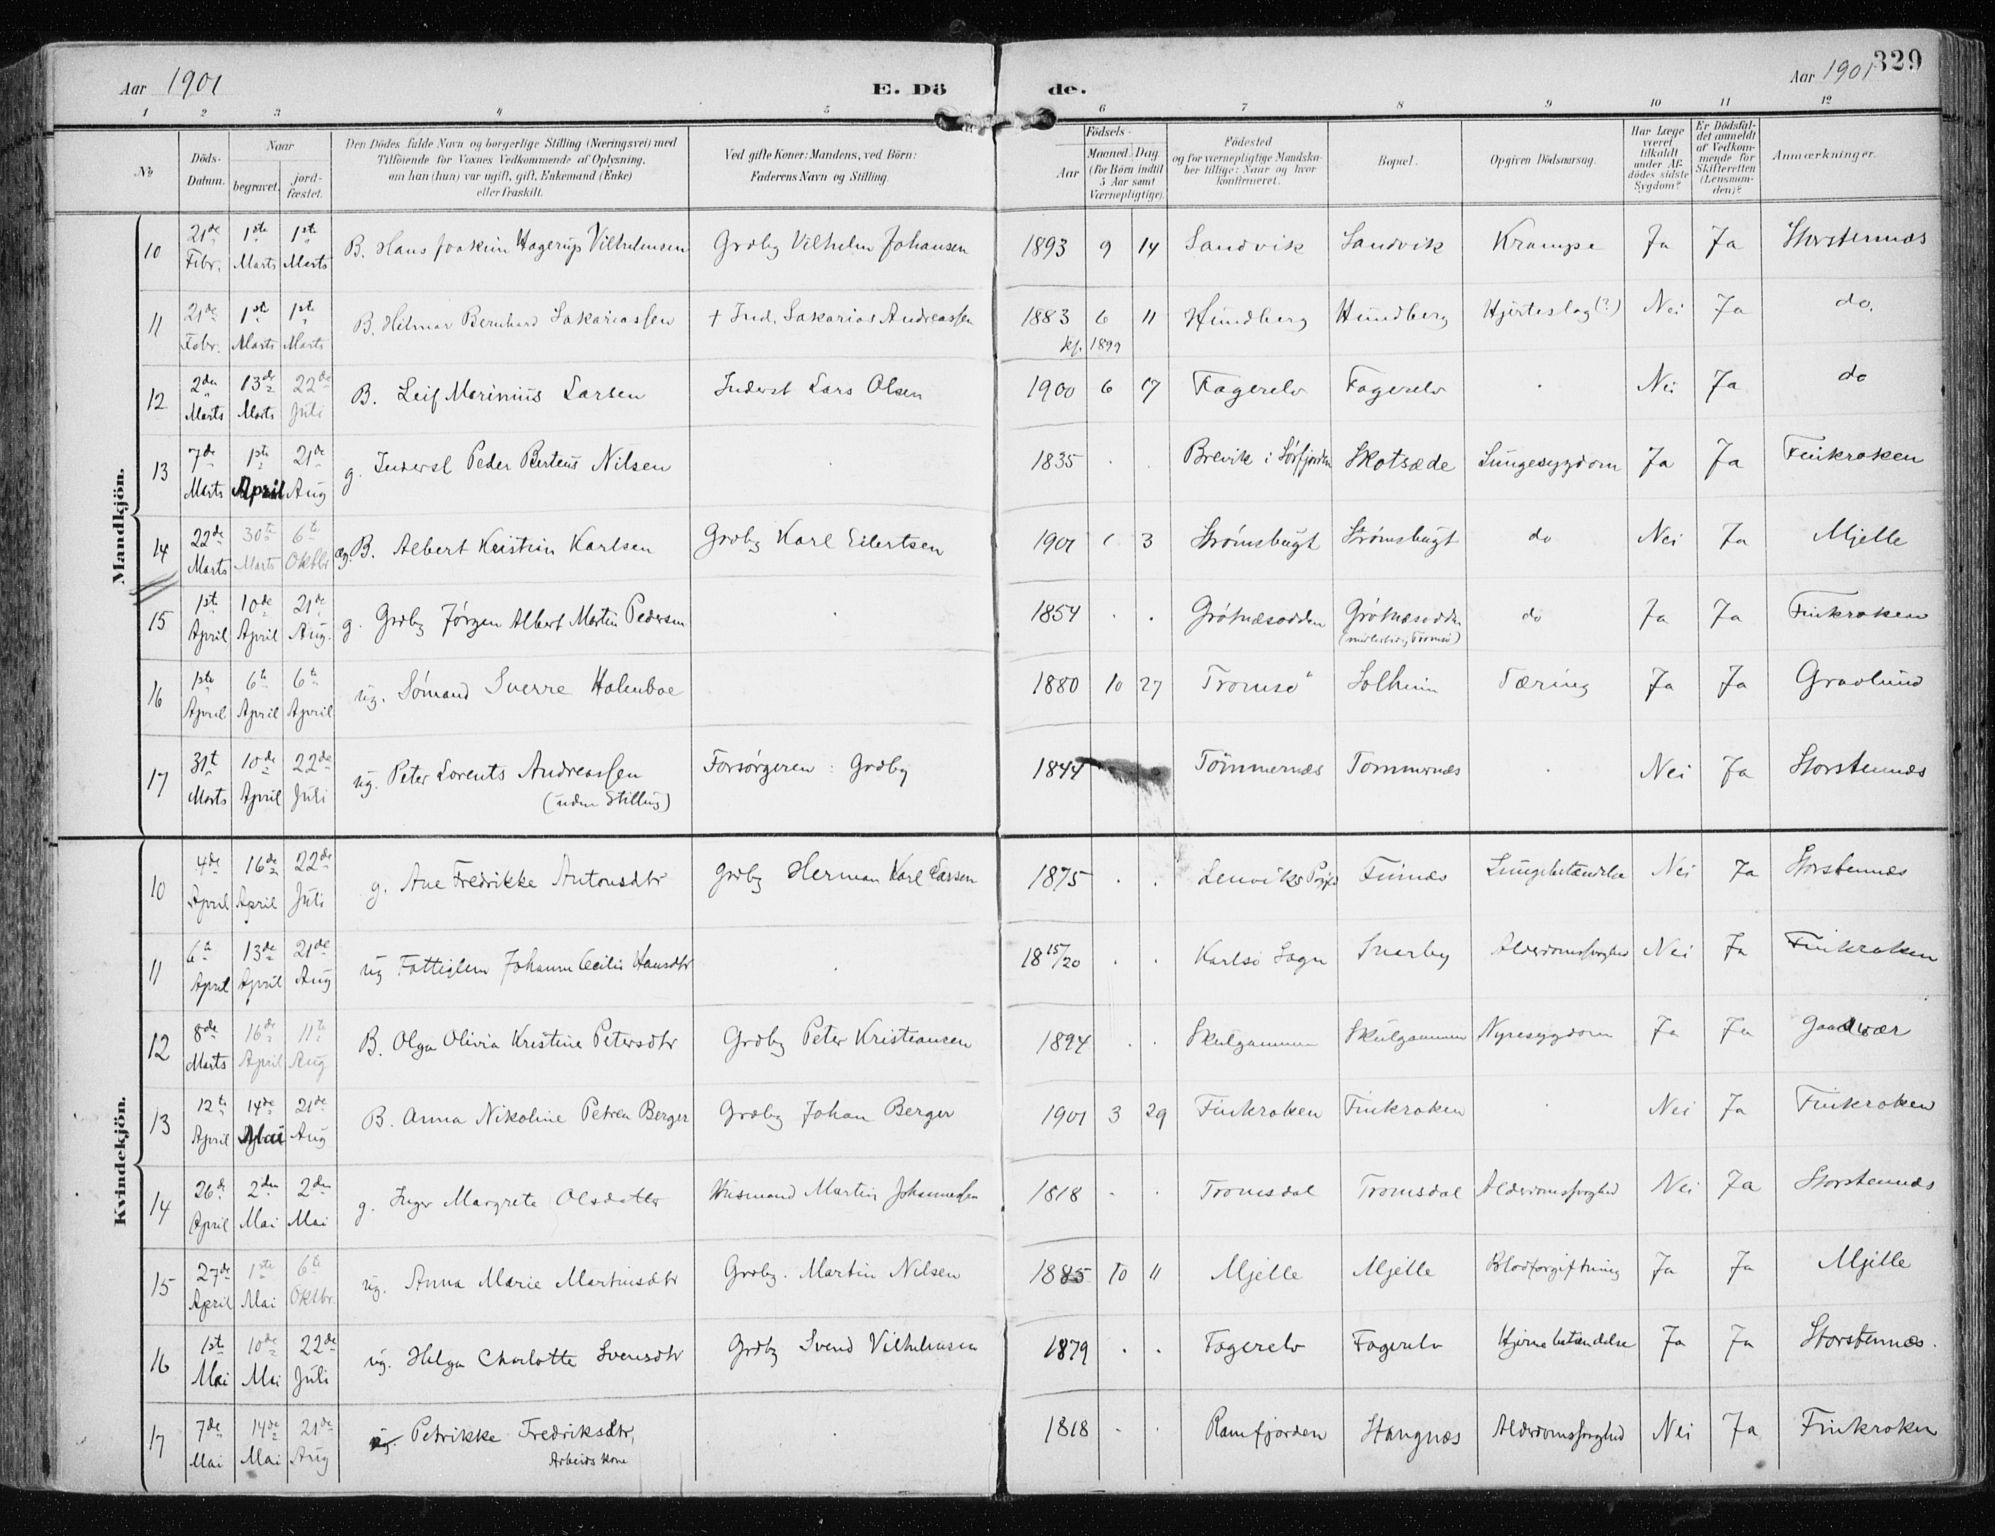 Aar 1901
E. Dö
de.
Aar 1901
329
1 2 3 4 5 6 7 8 9 10 11 12
No
Döds-Datum.
Naar
begravet.
jordfæstet.
Den Dödes fulde Navn og borgerlige Stilling (Næringsvei) med
Tilföiende for Voxnes Vedkommende af Oplysning,
om han (hun) var ugift, gift, Enkemand (Enke)
eller fraskilt.
Ved gifte Koner: Mandens, ved Börn:
Faderens Navn og Stilling.
Födsels-
Aar
Maaned. Dag.
(for Börn indtil
5 Aar samt
Værnepligtige).
Födested
og for værnepligtige Mandskaber tillige: Naar og hvor
konfirmeret.
Bopæl.
Opgiven Dödsaarsag.
Har Læge været tilkaldt under Afdödes sidste Sygdom?
Er Dödsfaldet anmeldt af Vedkommende for Skifteretten (Lensmanden)?
Anmærkninger.
Mandkjön.
10 21de Febr. 1ste Marts 1ste Marts B. Hans Joakim Hagerup Vilhelmsen Grdbg Vilhelm Johansen 1893 9 14 Sandvik Sandvik Krampe Ja Ja Storstennæs
11 21de Febr. 1ste Marts 1ste Marts B. Hilmar Bernhard Sakariassen + Ind. Sakarias Andreassen 1883 6 11 Hundberg Hundberg Hjerteslag (?) Nei Ja do.
kf. 1899
12 2den Marts 13de Marts 22de Juli B. Leif Marinius Larsen Inderst Lars Olsen 1900 6 17 Fagerelv Fagerelv . Nei Ja do
13 7de Marts 1ste April 21de Aug g. Inderst Peder Berteus Nilsen . 1835 . . Brevik i Sörfjorden Skotsæde Lungesygdom Ja Ja Finkroken
14 22de Marts 30te Marts 6te Oktbr æg. B. Albert Kristian Karlsen Grdbg Karl Eilertsen 1901 3 Strømsbugt Strømsbugt do Nei Ja Mjelle
15 1ste April 10de April 21de Aug. g. Grdbg Jørgen Albert Martin Pedersen . 1854 . . Grötnæsodden Grötnæsodden do Ja Ja Finkroken
16 1ste April 6te April 6te April ug. Sømand Sverre Holmboe 1880 10 27 Tromsö Solheim Tæring Ja Ja Gravlund
17 31te Marts 10de April 22de Juli ug. Peter Lorents Andreassen Forsörgeren: Grdbg 1844 Tömmernæs Tommernæs . Nei Ja Storstennæs
(uden Stilling)
Kvindekjön.
10 4de April 16de April 22de Juli g. Ane Fredrikke Antonsdtr Grdbg Herman Karl Larsen 1875 . . Lenviks Finnæs Lungebetændelse Nei Ja Storstennæs
11 6te April 13de April 21de Aug ug Fattiglem Johanna Cecilie Hansdtr . 1815/20 . . Karlsö Sogn Snarby Alderdomssvaghed Nei Ja Finkroken
12 8de Marts 16de April 11te Aug B. Olga Olivia Kristine Petersdtr Grdbg Peter Kristiansen 1894 . . Skulgammen Skulgammen Nyresygdom Ja Ja
13 12te April 14de Mai 21de Aug B. Anna Nikoline Petrea Berger Grdbg Johan Berger 1901 3 29 Finkroken Finkroken . Nei Ja Finkroken
14 26de April 2den Mai 2den Mai g. Inger Margrete Olsdatter Husmand Martin Johannessen 1818 . . Tromsdal Tromsdal Alderdomssvaghed Nei Ja Storstennæs
15 27de April 1ste Mai 6te Oktbr. ug. Anna Marie Martinsdtr Grdbg. Martin Nilsen 1885 10 11 Mjelle Mjelle Blodforgiftning Ja Ja Mjelle
16 1ste Mai 10de Mai 22de Juli ug. Helga Charlotte Svensdtr Grdbg Svend Vilhelmsen 1879 . . Fagerelv Fagerelv Hjernebetændelse Ja Ja Storstennæs.
17 7de Mai 14de Mai 21de Aug ug. Petrikke Fredriksdtr, . 1818 . . Ramfjorden Stangnæs Alderdomssvaghed Nei Ja Finkroken
Arbeids Kone